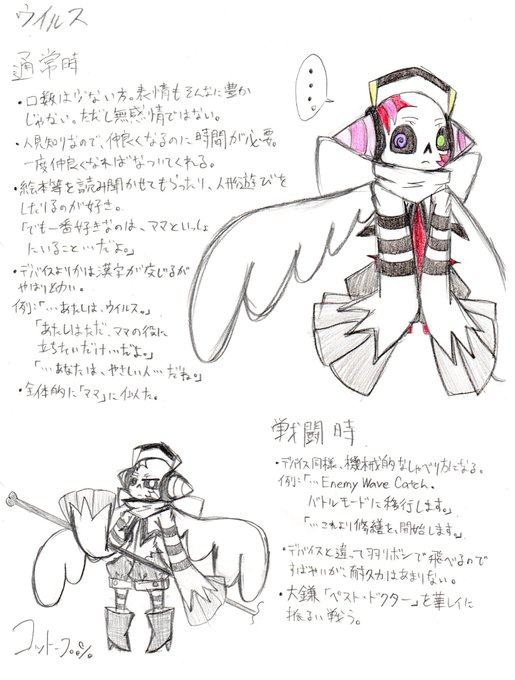 ウイルス
通常時
・口数は少ない方。表情もそんなに豊か
じゃない。ただし無感情ではない。
・人見知りなので、仲良くなるのに時間が必要。
一度仲良くなればなついてくれる。
・絵本等を読み聞かせてもらったり、人形遊びを
したりするのが好き。
「でも一番好きなのは、ママといっしょ
にいること…だよ。」
・デバイスよりかは漢字が交じるが
やはり幼い。
例:「…あたしは、ウイルス。」
「あたしはただ、ママの役に
立ちたいだけ…だよ。」
「…あなたは、やさしい人…だね。」
・全体的に「ママ」に似た。
戦闘時
・デバイス同様、機械的なしゃべり方になる。
例:「…Enemy Wave Catch.
バトルモードに移行します。」
「…これより修繕を、開始します。」
・デバイスと違って羽リボンで飛べるので
すばやいが、耐久力はあまりない。
・大鎌「ペスト・ドクター」を華レイに
振るい戦う。